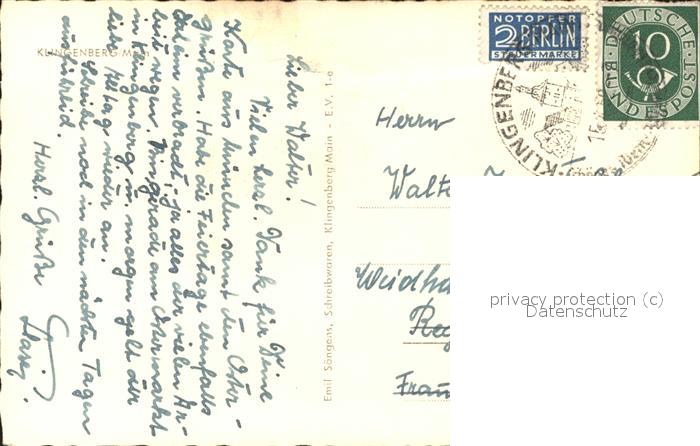 KLINGENBERG-Main
Lieber Walter!
Vielen herzl. Dank für Deine
Karte aus München samt den Oster-
grüßen. Habe die Feiertage ebenfalls
verbracht, ja alles der vielen Ar-
beit wegen. Bin gerade am Ostermarkt
in Klingenberg u. morgen geht der
liebe Alltag wieder an.
Schreibe noch in den nächsten Tagen
Herzl. Grüße
Emil Söngens, Schreibwaren, Klingenberg Main - E.V. 1-e
NOTOPFER
2 BERLIN
STEUERMARKE
DEUTSCHE
10
BUNDESPOST
KLINGENBERG
Herrn
Walte
Weidha
Reg
Fran
privacy protection (c)
Datenschutz